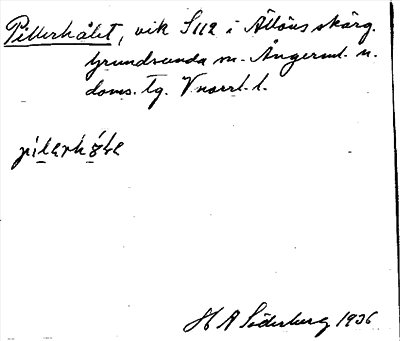 Pitterhålet, vik S112 i Ällöns skärg.
Grundsunda sn. Ångerml. n.
doms. tg. V norrl. l.
H A Söderberg 1936